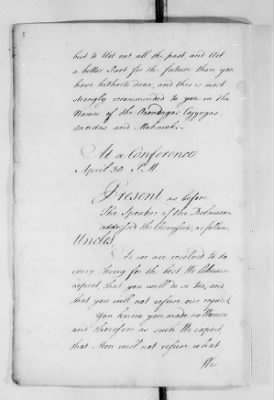 best to blot out all the past, and Act
a better Part for the future than you
have hitherto done, and this is most
strongly recommended to you in the
Name of the Onondagas Cayugas
and Mohawks.
At a Conference
April 30 P.M
Present as before
The Speaker of the Delawares
addressed the Cherokees, as follows,
Uncles
As we are resolved to do
every thing for the best We
expect that you will do so too, and
that you will not refuse our request,
You know you made us Women
and therefore as such We expect,
that Men will not refuse what
We